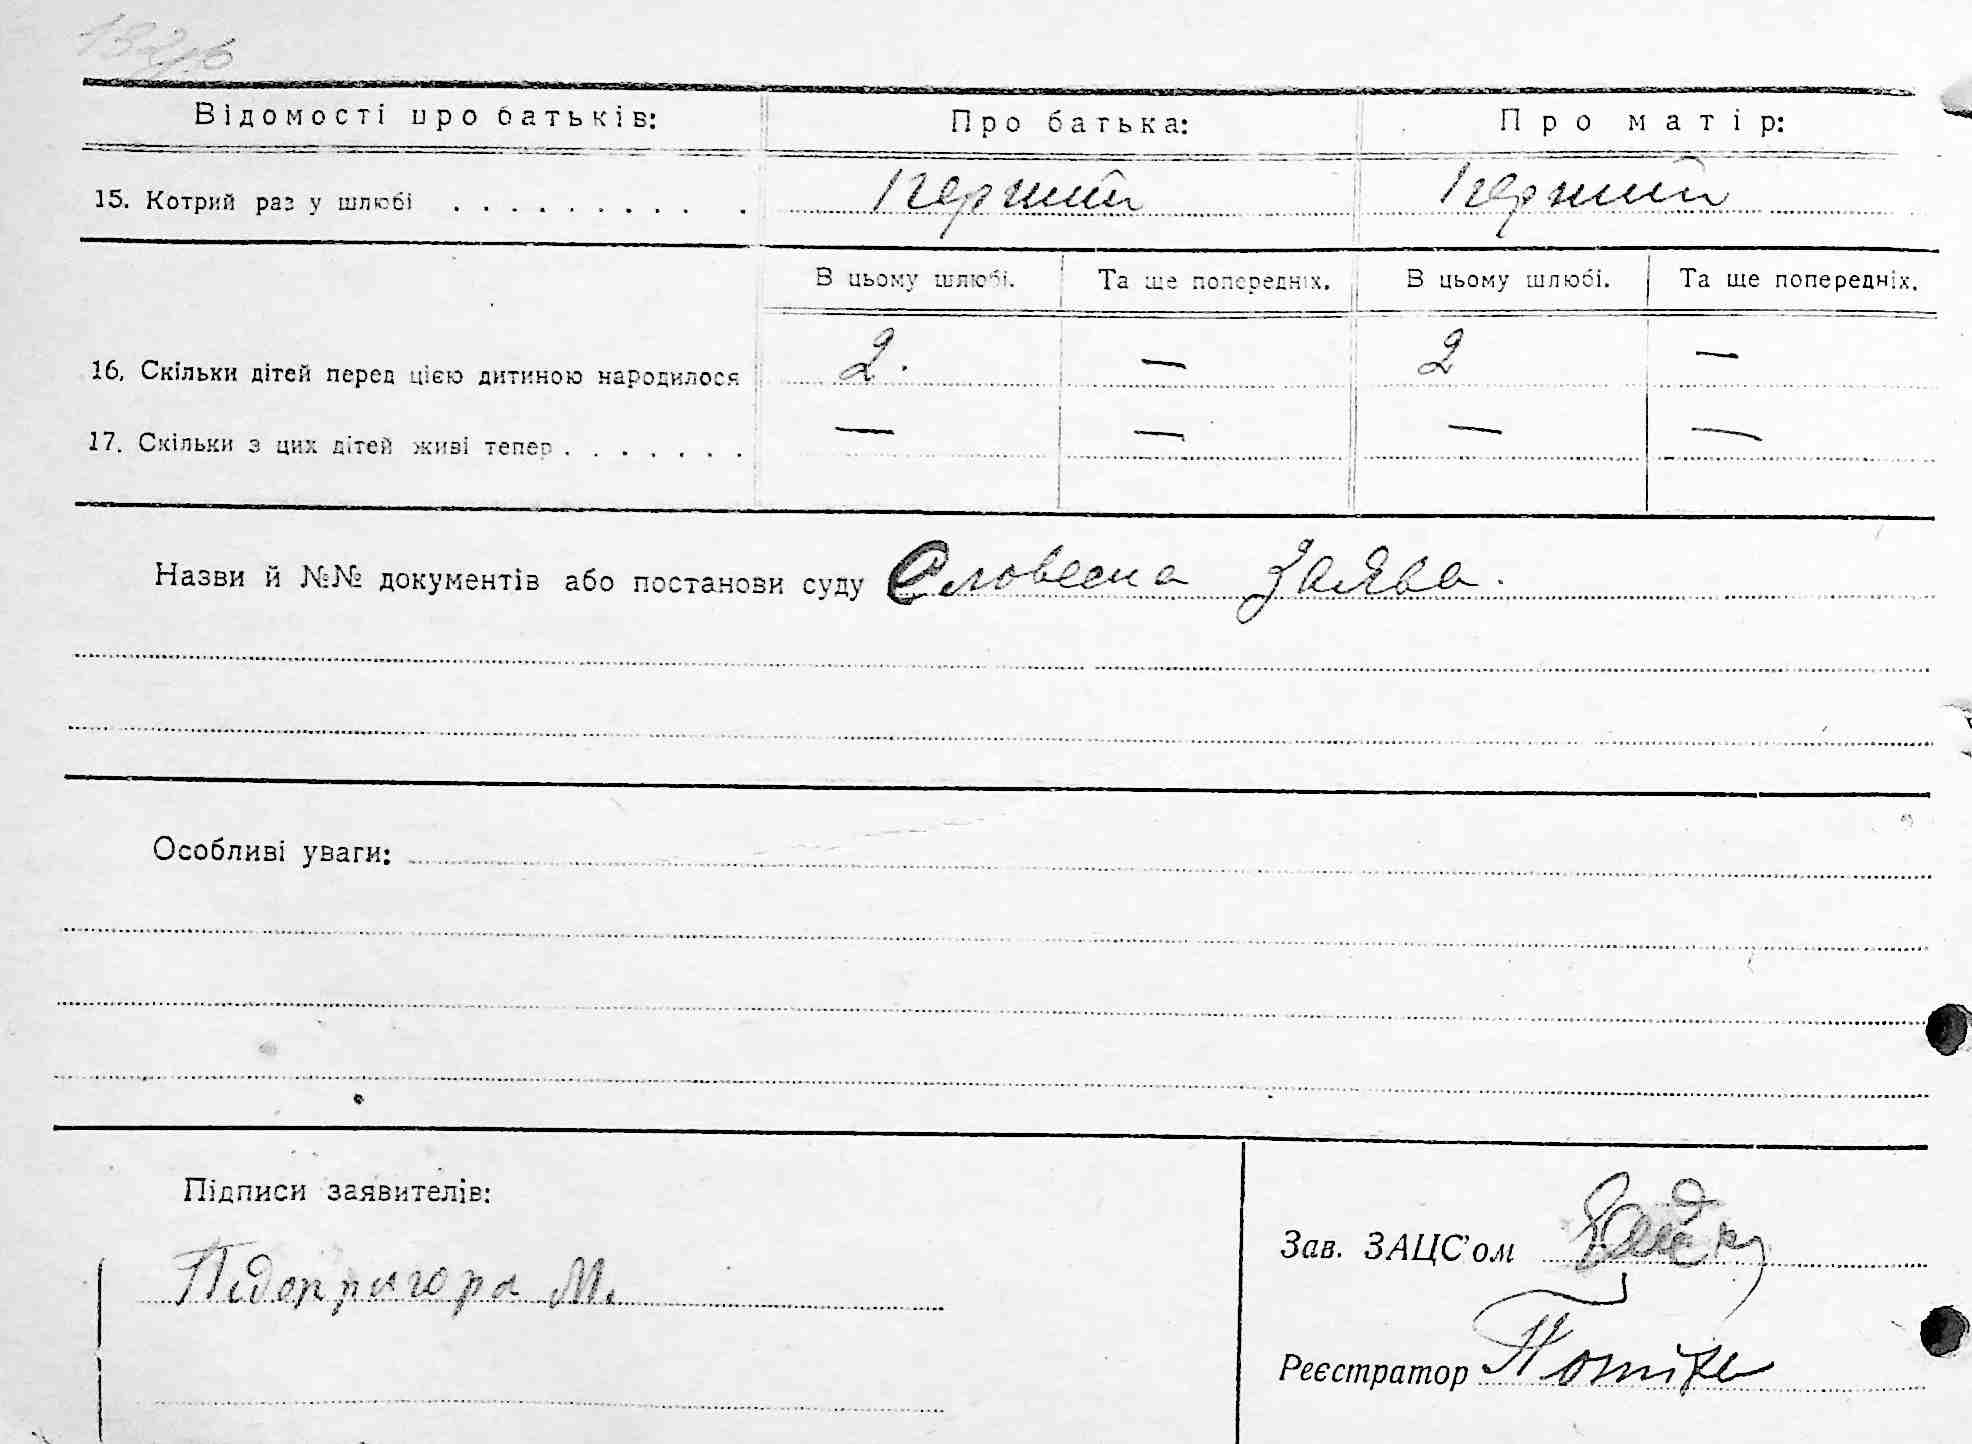 Відомості про батьків: Про батька: Про матір:
15. Котрий раз у шлюбі . . . . . . . . . . перший перший
В цьому шлюбі. Та ще попередніх. В цьому шлюбі. Та ще попередніх.
16. Скільки дітей перед цією дитиною народилося 2. — 2 —
17. Скільки з цих дітей живі тепер . . . . . . . — — — —
Назви й №№ документів або постанови суду Словесна заява.
Особливі уваги:
Підписи заявителів:
Зав. ЗАЦС'ом
Підопригора М.
Реєстратор